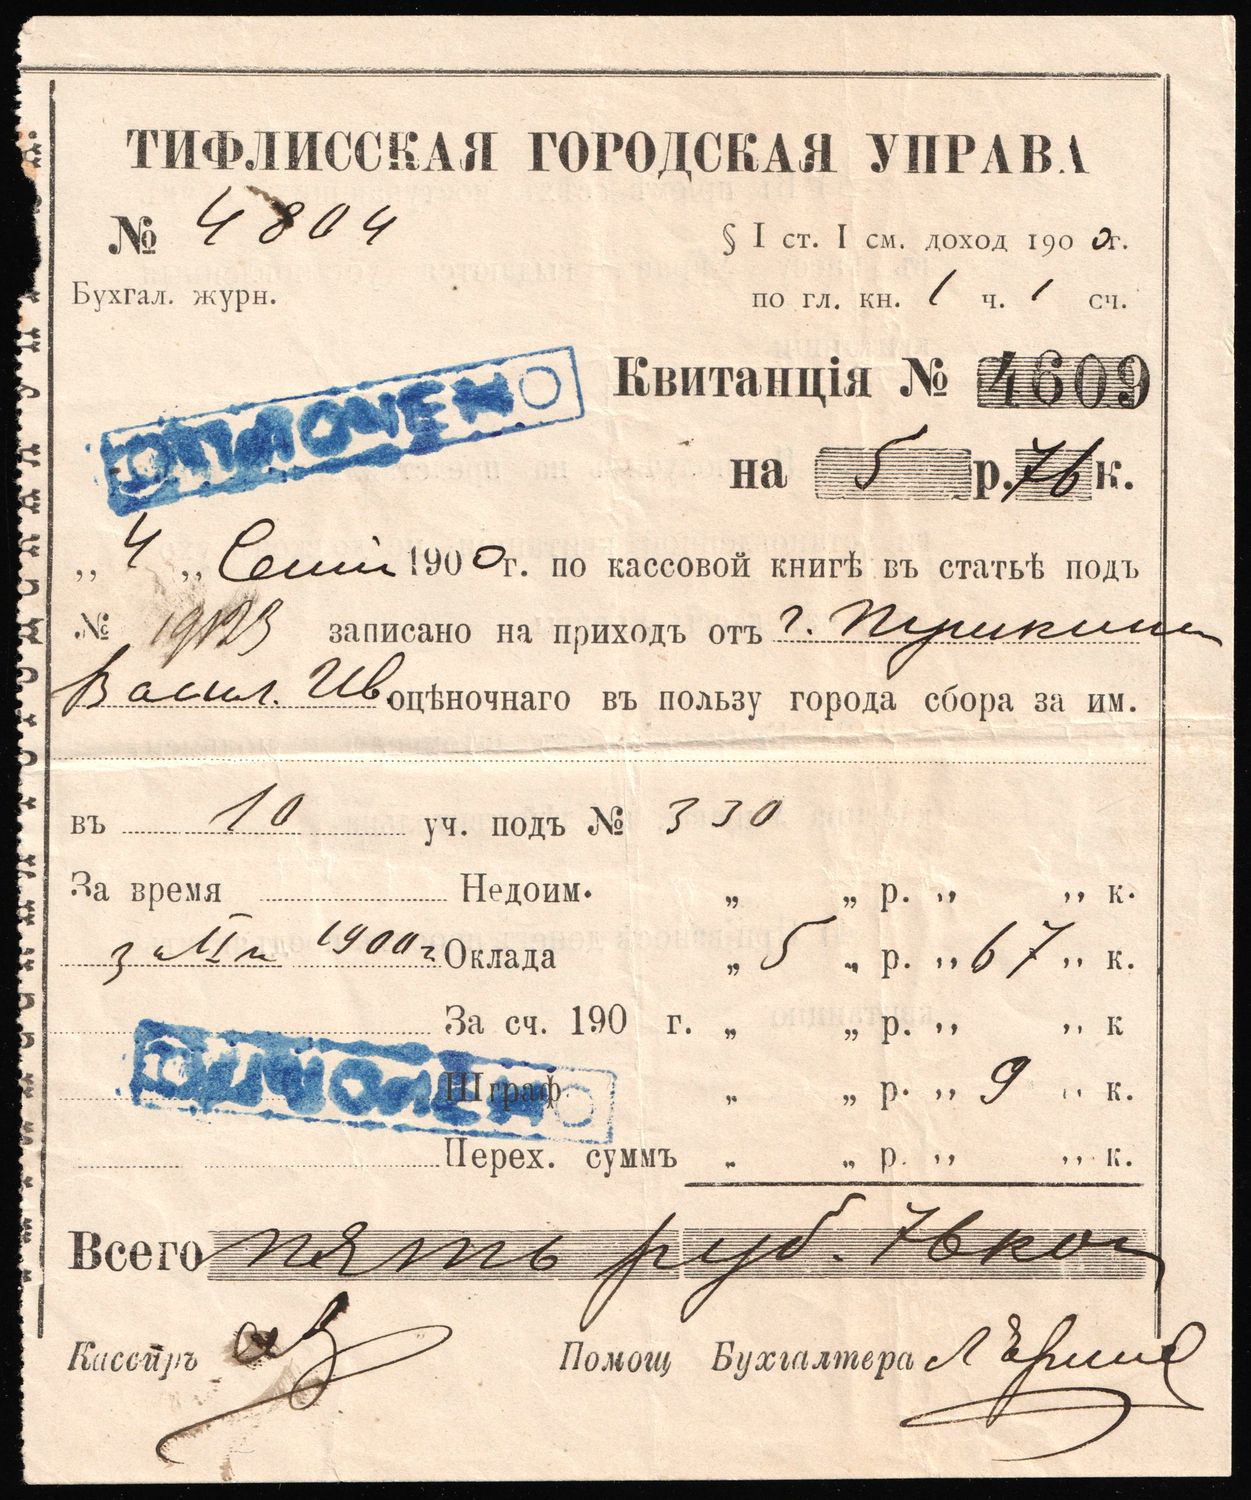 ТИФЛИССКАЯ ГОРОДСКАЯ УПРАВА
№ 4804
§ I ст. I см. доход 1900г.
Бухгал. журн.
по гл. кн. 1 ч. 1 сч.
Квитанція № 4609
ОПЛОЧЕН
на 5 р. 76 к.
„ 4 „ Сент 1900г. по кассовой книгѣ въ статьѣ подъ
№ 19123 записано на приходъ отъ г. Пушкина
Васил. Ив оцѣночнаго въ пользу города сбора за им.
въ 10 уч. подъ № 330
За время Недоим. „ „ р. „ „ к.
1900г Оклада „ 5 „ р. „ 67 „ к.
За сч. 190 г. „ „ р. „ „ к
ОПЛОЧЕН
Штраф „ „ р. „ 9 „ к.
Перех. суммъ „ „ р. „ „ к.
Всего пять руб. 76 коп
Кассиръ
Помощ Бухгалтера